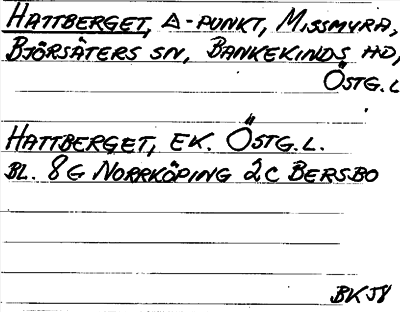 HATTBERGET, △-PUNKT, MISSMYRA,
BJÖRSÄTERS SN, BANKEKINDS HD,
ÖSTG.L
HATTBERGET, EK. ÖSTG.L.
BL. 8G NORRKÖPING 2C BERSBO
BK58